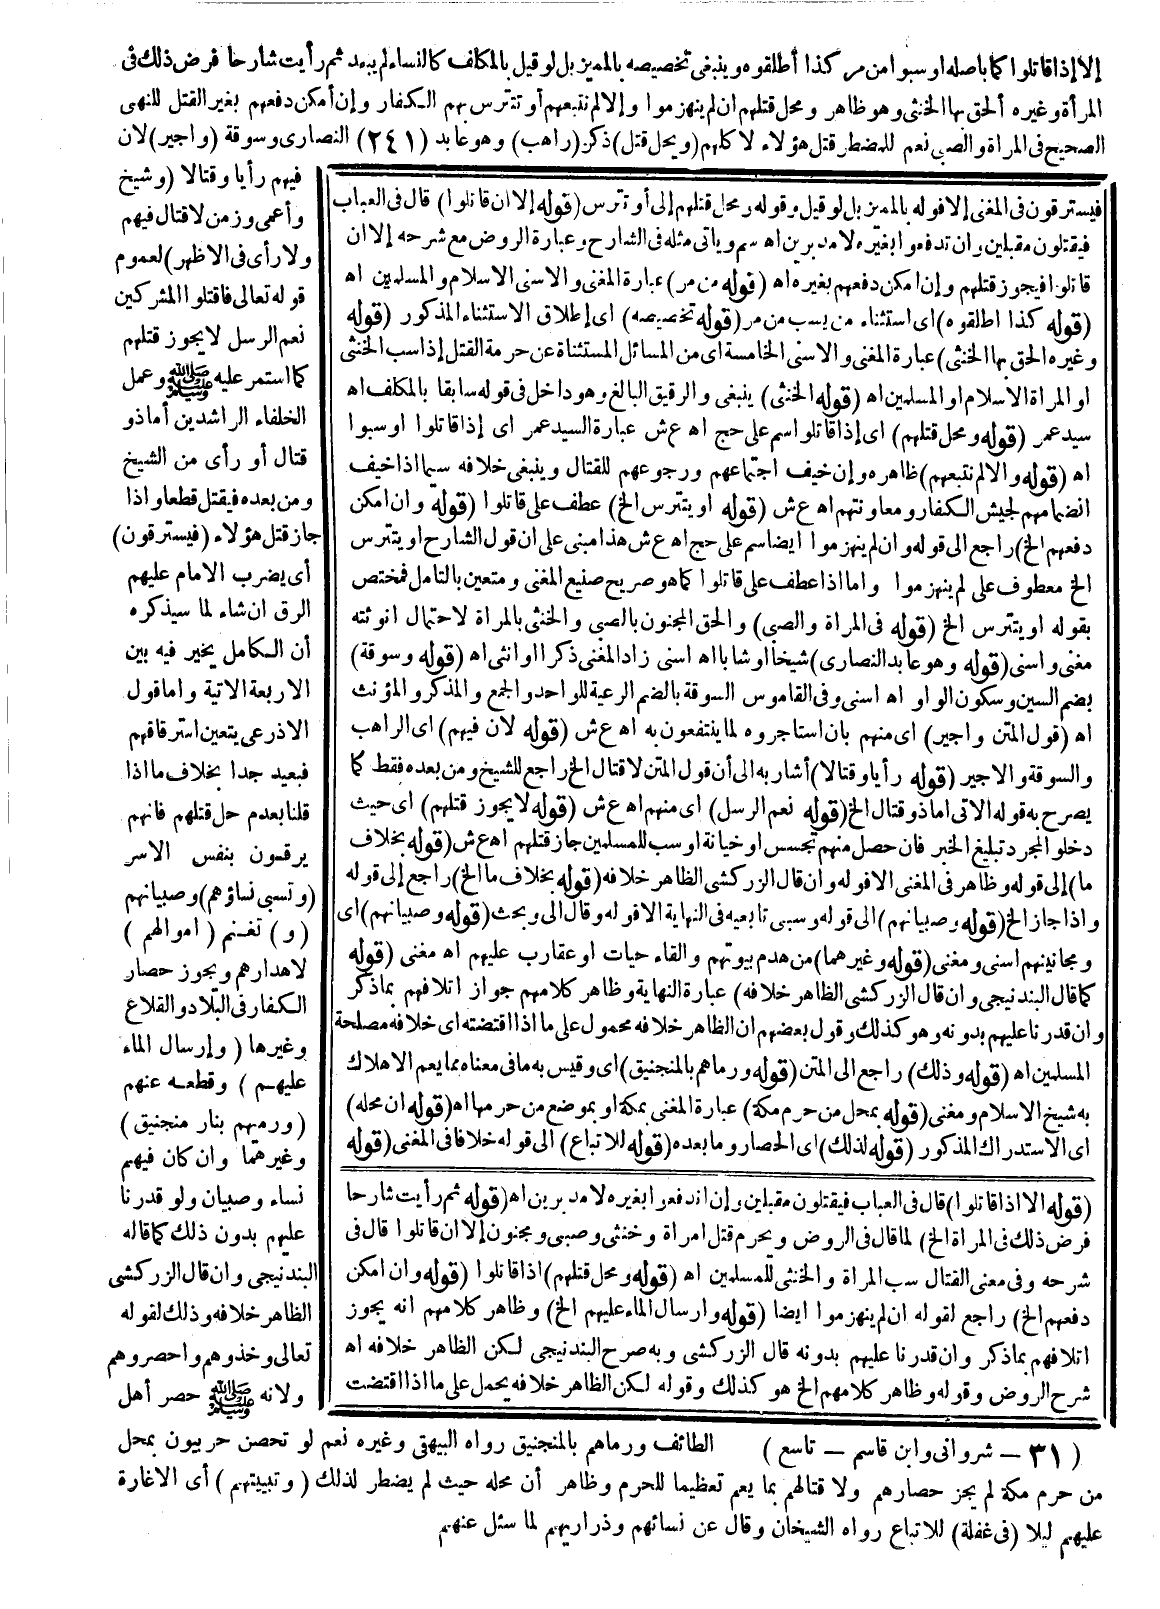 إلا إذا قاتلوا كما بأصله أو سبوا من مر كذا أطلقوه وينبغي تخصيصه بالمميز بل لو قيل بالمكلف كالنساء لم يبعد ثم رأيت شارحا فرض ذلك في
المرأة وغيره ألحق بها الخنثى وهو ظاهر ومحل قتلهم ان لم ينهزموا وإلا لم نتبعهم أو تترس بهم الكفار وإن أمكن دفعهم بغير القتل للنهي
الصحيح في المرأة والصبي نعم للمضطر قتل هؤلاء لا كلهم (ويحل قتل) ذكر (راهب) وهو عابد (٢٤١) النصارى وسوقة (واجير) لان
فيهم رأيا وقتالا (وشيخ
وأعمى وزمن لا قتال فيهم
ولا رأى في الاظهر) لعموم
قوله تعالى فاقتلوا المشركين
نعم الرسل لا يجوز قتلهم
كما استمر عليه ﷺ وعمل
الخلفاء الراشدين أما ذو
قتال أو رأى من الشيخ
ومن بعده فيقتل قطعا واذا
جاز قتل هؤلاء (فيسترقون)
أى يضرب الامام عليهم
الرق ان شاء لما سيذكره
أن الكامل يخير فيه بين
الاربعة الاتية واما قول
الاذرعى يتعين استرقاقهم
فبعيد جدا بخلاف ما اذا
قلنا بعدم حل قتلهم فانهم
يرقون بنفس الاسر
(وتسبى نساؤهم) وصبيانهم
(و) تغنم (اموالهم)
لاهدارهم ويجوز حصار
الكفار في البلاد والقلاع
وغيرها (وإرسال الماء
عليهم) وقطعه عنهم
(ورميهم بنار منجنيق)
وغيرهما وان كان فيهم
نساء وصبيان ولو قدرنا
عليهم بدون ذلك كما قاله
البندنيجى وان قال الزركشى
الظاهر خلافه وذلك لقوله
تعالى وخذوهم واحصروهم
ولانه ﷺ حصر أهل
فيسترقون في المغنى إلا قوله بالمميز بل لو قيل وقوله ومحل قتلهم إلى أو تترس (قوله إلا ان قاتلوا) قال في العباب
فيقتلون مقبلين وان تدفعوا بغيره لا مدبرين اه سم ويأتى مثله في الشارح وعبارة الروض مع شرحه إلا ان
قاتلوا فيجوز قتلهم وإن امكن دفعهم بغيره اه (قوله من مر) عبارة المغنى والاسنى الاسلام والمسلمين اه
(قوله كذا اطلقوه) اى استثناء من يسب من مر (قوله تخصيصه) اى إطلاق الاستثناء المذكور (قوله
وغيره الحق بها الخنثى) عبارة المغنى والاسنى الخامسة اى من المسائل المستثناة عن حرمة القتل إذا سب الخنثى
او المراة الاسلام او المسلمين اه (قوله الخنثى) ينبغى والرقيق البالغ وهو داخل في قوله سابقا بالمكلف اه
سيد عمر (قوله ومحل قتلهم) اى إذا قاتلوا سم على حج اه ع ش عبارة السيد عمر اى إذا قاتلوا او سبوا
اه (قوله والا لم نتبعهم) ظاهره وإن خيف اجتماعهم ورجوعهم للقتال وينبغى خلافه سيما اذا خيف
انضمامهم لجيش الكفار ومعاونتهم اه ع ش (قوله او يتترس الخ) عطف على قاتلوا (قوله وان امكن
دفعهم الخ) راجع الى قوله وان لم ينهزموا ايضا سم على حج اه ع ش هذا مبنى على ان قول الشارح او يتترس
الخ معطوف على لم ينهزموا واما اذا عطف على قاتلوا كما هو صريح صنيع المغنى ومتعين بالتامل فمختص
بقوله او يتترس الخ (قوله في المراة والصبى) والحق المجنون بالصبى والخنثى بالمراة لاحتمال انوثته
مغنى واسنى (قوله وهو عابد النصارى) شيخا او شابا اه اسنى زاد المغنى ذكرا او انثى اه (قوله وسوقة)
بضم السين وسكون الواو اه اسنى وفي القاموس السوقة بالضم الرعية للواحد والجمع والمذكر والمؤنث
اه (قول المتن واجير) اى منهم بان استاجروه لما ينتفعون به اه ع ش (قوله لان فيهم) اى الراهب
والسوقة والاجير (قوله رأيا وقتالا) أشار به الى أن قول المتن لا قتال الخ راجع للشيخ ومن بعده فقط كما
يصرح به قوله الاتى اما ذو قتال الخ (قوله نعم الرسل) اى منهم اه ع ش (قوله لا يجوز قتلهم) اى حيث
دخلوا لمجرد تبليغ الخبر فان حصل منهم تجسس او خيانة او سب للمسلمين جاز قتلهم اه ع ش (قوله بخلاف
ما) إلى قوله وظاهر في المغنى الا قوله وان قال الزركشى الظاهر خلافه (قوله بخلاف ما الخ) راجع إلى قوله
واذا جاز الخ (قوله وصبيانهم) الى قوله وسبى تابعيه في النهاية الا قوله وقال الى وبحث (قوله وصبيانهم) اى
ومجانينهم اسنى ومغنى (قوله وغيرهما) من هدم بيوتهم والقاء حيات او عقارب عليهم اه مغنى (قوله
كما قال البندنيجى وان قال الزركشى الظاهر خلافه) عبارة النهاية وظاهر كلامهم جواز اتلافهم بما ذكر
وان قدرنا عليهم بدونه وهو كذلك وقول بعضهم ان الظاهر خلافه محمول على ما اذا اقتضته اى خلافه مصلحة
المسلمين اه (قوله وذلك) راجع الى المتن (قوله ورماهم بالمنجنيق) اى وقيس به ما في معناه مما يعم الاهلاك
به شيخ الاسلام ومغنى (قوله بمحل من حرم مكة) عبارة المغنى بمكة او بموضع من حرمها اه (قوله ان محله)
اى الاستدراك المذكور (قوله لذلك) اى الحصار وما بعده (قوله للاتباع) الى قوله خلافا في المغنى (قوله
(قوله الا اذا قاتلوا) قال في العباب فيقتلون مقبلين وإن اندفعوا بغيره لا مدبرين اه (قوله ثم رأيت شارحا
فرض ذلك في المراة الخ) لما قال في الروض ويحرم قتل امراة وخنثى وصبى ومجنون إلا ان قاتلوا قال في
شرحه وفي معنى القتال سب المراة والخنثى للمسلمين اه (قوله ومحل قتلهم) اذا قاتلوا (قوله وان امكن
دفعهم الخ) راجع لقوله ان لم ينهزموا ايضا (قوله وارسال الماء عليهم الخ) وظاهر كلامهم انه يجوز
اتلافهم بما ذكر وان قدرنا عليهم بدونه قال الزركشى وبه صرح البندنيجى لكن الظاهر خلافه اه
شرح الروض وقوله وظاهر كلامهم الخ هو كذلك وقوله لكن الظاهر خلافه يحمل على ما اذا اقتضت
(٣١ — شروانى وابن قاسم — تاسع) الطائف ورماهم بالمنجنيق رواه البيهقى وغيره نعم لو تحصن حربيون بمحل
من حرم مكة لم يجز حصارهم ولا قتالهم بما يعم تعظيما للحرم وظاهر أن محله حيث لم يضطر لذلك (وتبييتهم) أى الاغارة
عليهم ليلا (في غفلة) للاتباع رواه الشيخان وقال عن نسائهم وذراريهم لما سئل عنهم